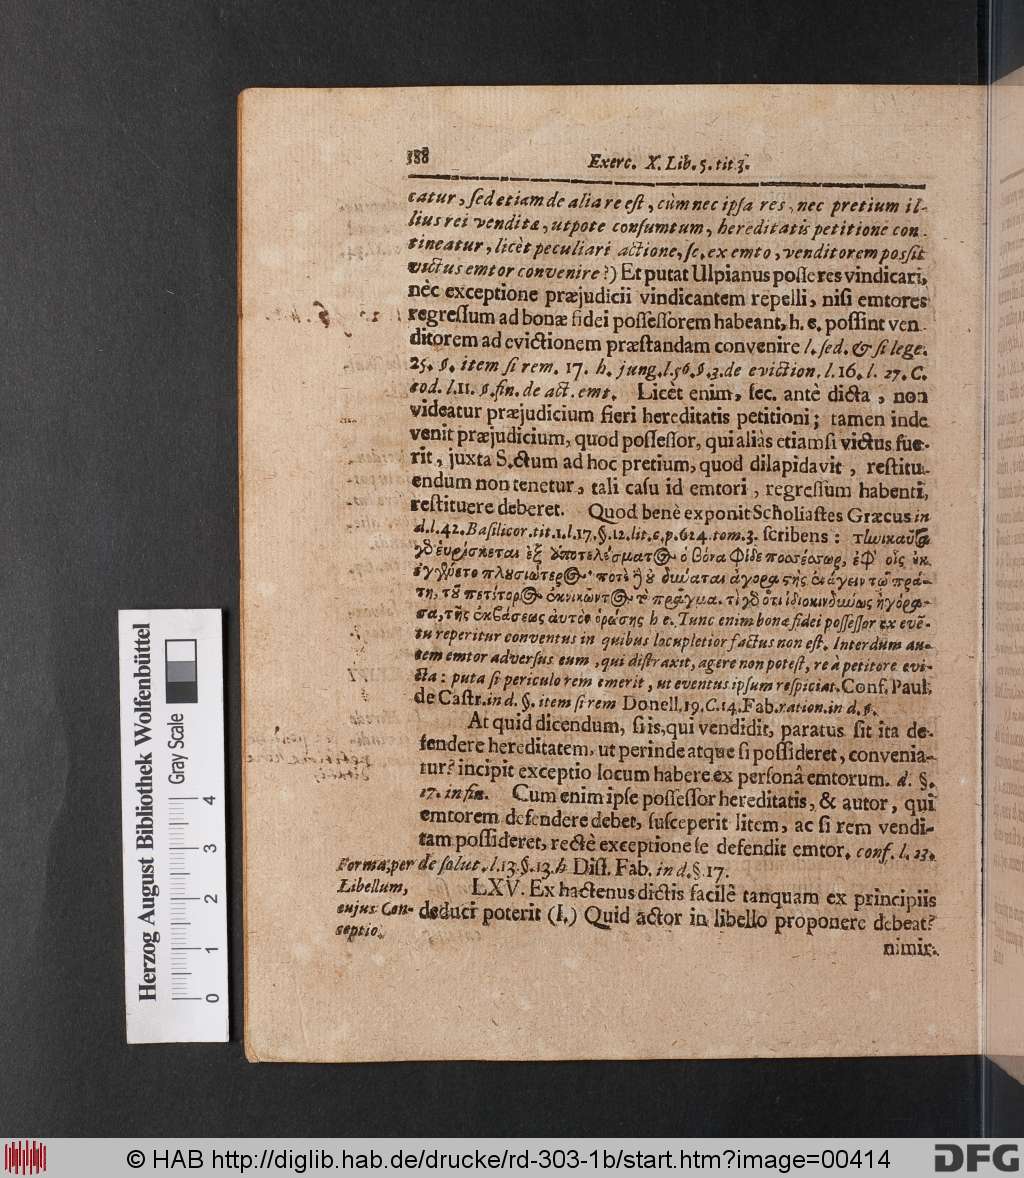 388
Exerc. X. Lib. 5. tit 3.
catur, sed etiam de alia re est, cùm nec ipsa res, nec pretium il-
lius rei venditæ, utpote consumtum, hereditatis petitione con-
tineatur, licèt peculiari actione, se, ex emto, venditorem possit
victus emtor convenire?) Et putat Ulpianus posse res vindicari,
nèc exceptione præjudicii vindicantem repelli, nisi emtores
regressum ad bonæ fidei possessorem habeant, h. e. possint ven-
ditorem ad evictionem præstandam convenire l. sed. & si lege.
25. §. item si rem. 17. h. jung. l. 56. §. 3. de eviction. l. 16. l. 27. C.
eod. l. 11. §. fin. de act. emt. Licèt enim, sec. antè dicta, non
videatur præjudicium fieri hereditatis petitioni; tamen inde
venit præjudicium, quod possessor, qui aliàs etiamsi victus fue-
rit, juxta S.ctum ad hoc pretium, quod dilapidavit, restitu-
endum non tenetur, tali casu id emtori, regressum habenti,
restituere deberet. Quod benè exponit Scholiastes Græcus in
d. l. 42. Basilicor. tit. 1. l. 17. §. 12. lit. e. p. 624. tom. 3. scribens:
εὑρίσκεται ἐξ ὁ βόνα φίδε ποσσέσσωρ, ἐφ' οἷς
πλουσιώτερος· ποτὲ δύναται ἀγοραστὴς
πετίτορος τὸ πρᾶγμα.
τῆς ἐκβάσεως h e. Tunc enim bonæ fidei possessor ex evē-
tu reperitur conventus in quibus locupletior factus non est. Interdum au-
tem emtor adversus eum, qui distraxit, agere non potest, re à petitore evi-
cta: puta si periculo rem emerit, ut eventus ipsum respiciat. Conf. Paul.
de Castr. in d. §. item si rem Donell. 19. C. 14. Fab. ration. in d. §.
At quid dicendum, si is, qui vendidit, paratus sit ita de-
fendere hereditatem, ut perinde atque si possideret, convenia-
tur? incipit exceptio locum habere ex personâ emtorum. d. §.
17. in fin. Cum enim ipse possessor hereditatis, & autor, qui
emtorem defendere debet, susceperit litem, ac si rem vendi-
tam possideret, rectè exceptione se defendit emtor. conf. l. 23.
de solut. l. 13. §. 13. h Dist. Fab. in d. §. 17.
Forma, per
Libellum,
cujus Con-
septio.
LXV. Ex hactenus dictis facilè tanquam ex principiis
deduci poterit (I.) Quid actor in libello proponere debeat?
nimir.
Herzog August Bibliothek Wolfenbüttel
Gray Scale
0 1 2 3 4
© HAB http://diglib.hab.de/drucke/rd-303-1b/start.htm?image=00414
DFG